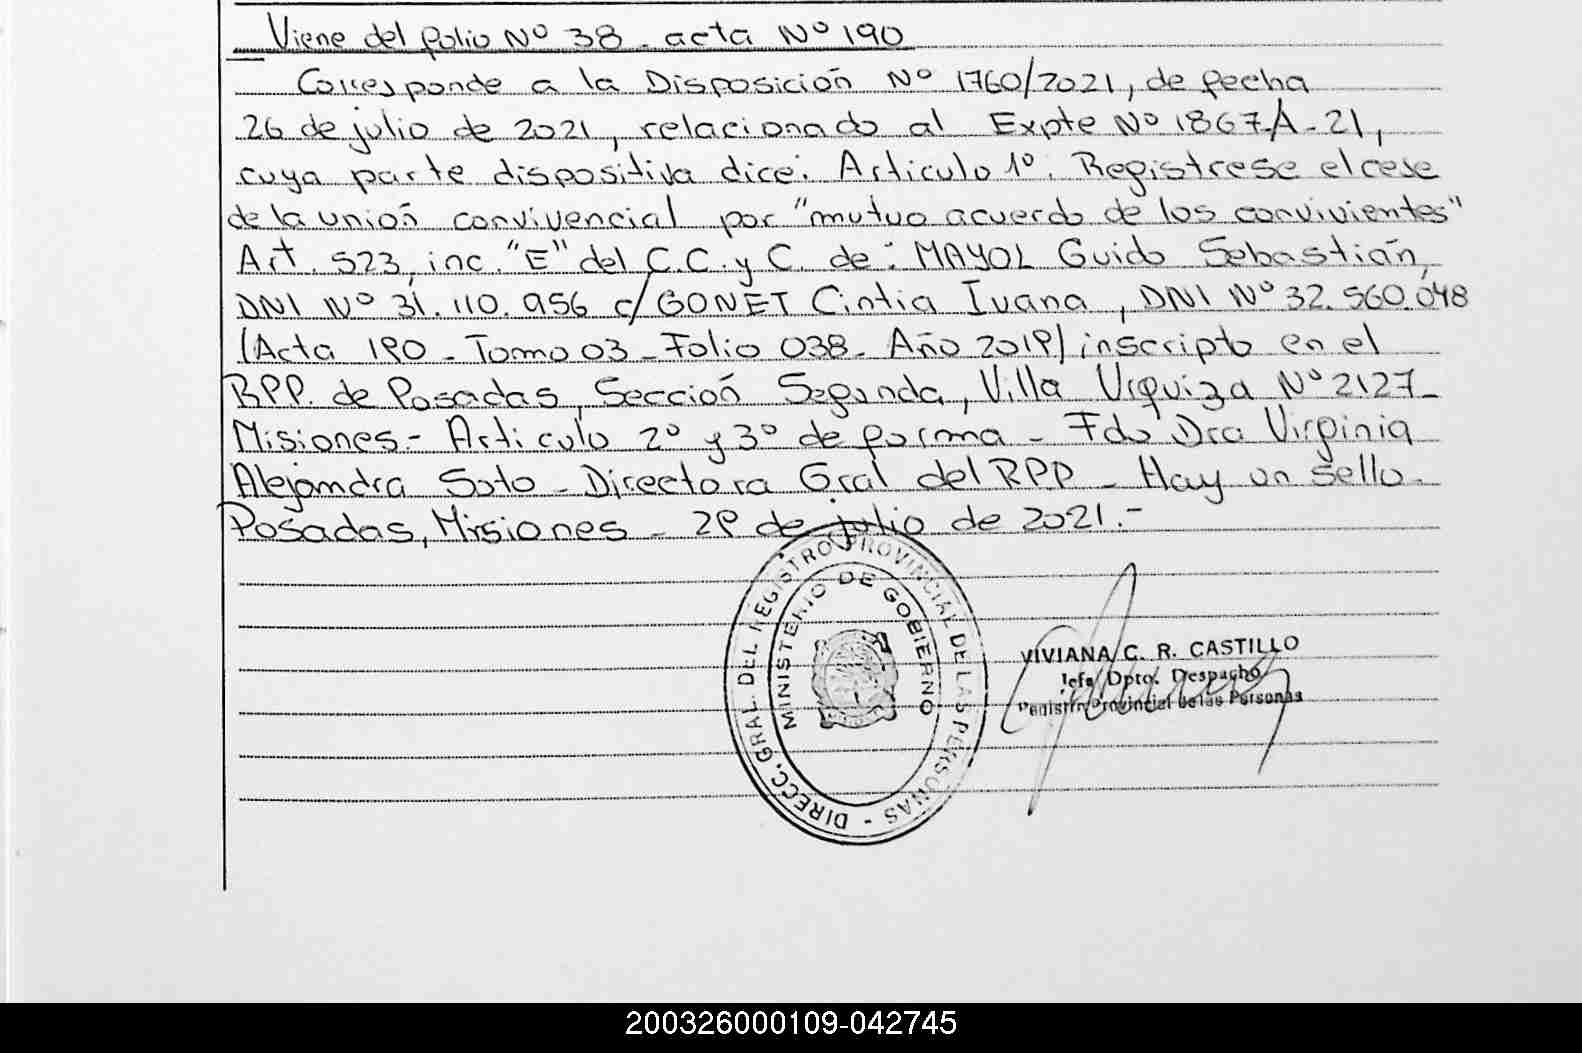 Viene del folio Nº 38 - acta Nº 190
Corresponde a la Disposición Nº 1760/2021, de fecha
26 de julio de 2021, relacionado al Expte Nº 1867-A-21,
cuya parte dispositiva dice: Articulo 1º: Registrese el cese
de la unión convivencial por "mutuo acuerdo de los convivientes"
Art. 523, inc. "E" del C.C. y C. de: MAYOL Guido Sebastián,
DNI Nº 31.110.956 c/GONET Cintia Ivana, DNI Nº 32.560.048
(Acta 190 - Tomo 03 - Folio 038 - Año 2019) inscripto en el
RPP. de Posadas, Sección Segunda, Villa Urquiza Nº 2127-
Misiones.- Articulo 2º y 3º de forma - Fdo Dra Virginia
Alejandra Soto - Directora Gral del RPP - Hay un sello.
Posadas, Misiones - 29 de julio de 2021.-
DIRECC. GRAL. DEL REGISTRO PROVINCIAL DE LAS PERSONAS -
MINISTERIO DE GOBIERNO
VIVIANA C. R. CASTILLO
Jefa Dpto. Despacho
Registro Provincial de las Personas
200326000109-042745